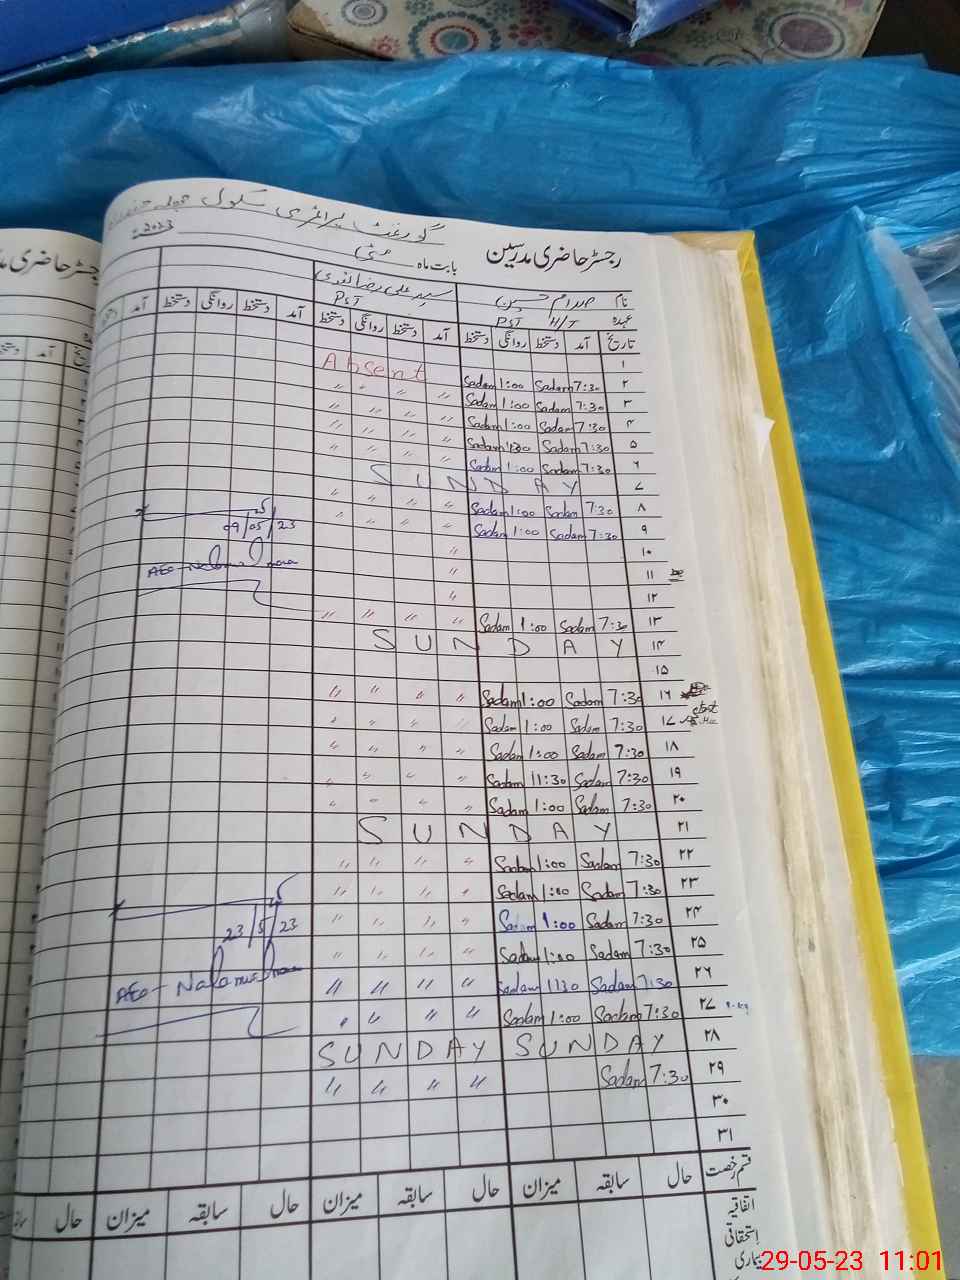 گورنمنٹ پرائمری سکول
رجسٹر حاضری مدرسین
بابت ماہ مئی 2023
نام صدام حسین سید علی رضا نقوی
عہدہ PST H/T PST
تاریخ آمد دستخط روانگی دستخط آمد دستخط روانگی دستخط آمد دستخط روانگی دستخط آمد
۱
۲ 7:30 Sadam 1:00 Sadam Absent
۳ 7:30 Sadam 1:00 Sadam " " " "
۴ 7:30 Sadam 1:00 Sadam " " " "
۵ 7:30 Sadam Sadam " " " "
۶ 7:30 Sadam 1:00 Sadam " " " "
۷ SUNDAY
۸ 7:30 Sadam 1:00 Sadam " " " "
۹ 7:30 Sadam 1:00 Sadam " " " "
09/05/23
۱۰ "
۱۱ "
AEO
۱۲ "
۱۳ 7:30 Sadam 1:00 Sadam " " " "
۱۴ SUNDAY
۱۵
۱۶ 7:30 Sadam 1:00 Sadam " " " "
۱۷ 7:30 Sadam 1:00 Sadam " " " "
۱۸ 7:30 Sadam 1:00 Sadam " " " "
۱۹ 7:30 Sadam 11:30 Sadam " " " "
۲۰ 7:30 Sadam 1:00 Sadam " " " "
۲۱ SUNDAY
۲۲ 7:30 Sadam 1:00 Sadam " " " "
۲۳ 7:30 Sadam 1:00 Sadam " " " "
۲۴ 7:30 Sadam 1:00 Sadam " " " "
23/5/23
۲۵ 7:30 Sadam 1:00 Sadam " " " "
۲۶ 7:30 Sadam 1130 Sadam " " " "
AEO
۲۷ 7:30 Sadam 1:00 Sadam " " " "
۲۸ SUNDAY SUNDAY
۲۹ 7:30 Sadam " " " "
۳۰
۳۱
قسم رخصت حال سابقہ میزان حال سابقہ میزان حال سابقہ میزان حال
اتفاقیہ
استحقاقی
بیماری
رجسٹر حاضری
آمد
29-05-23 11:01